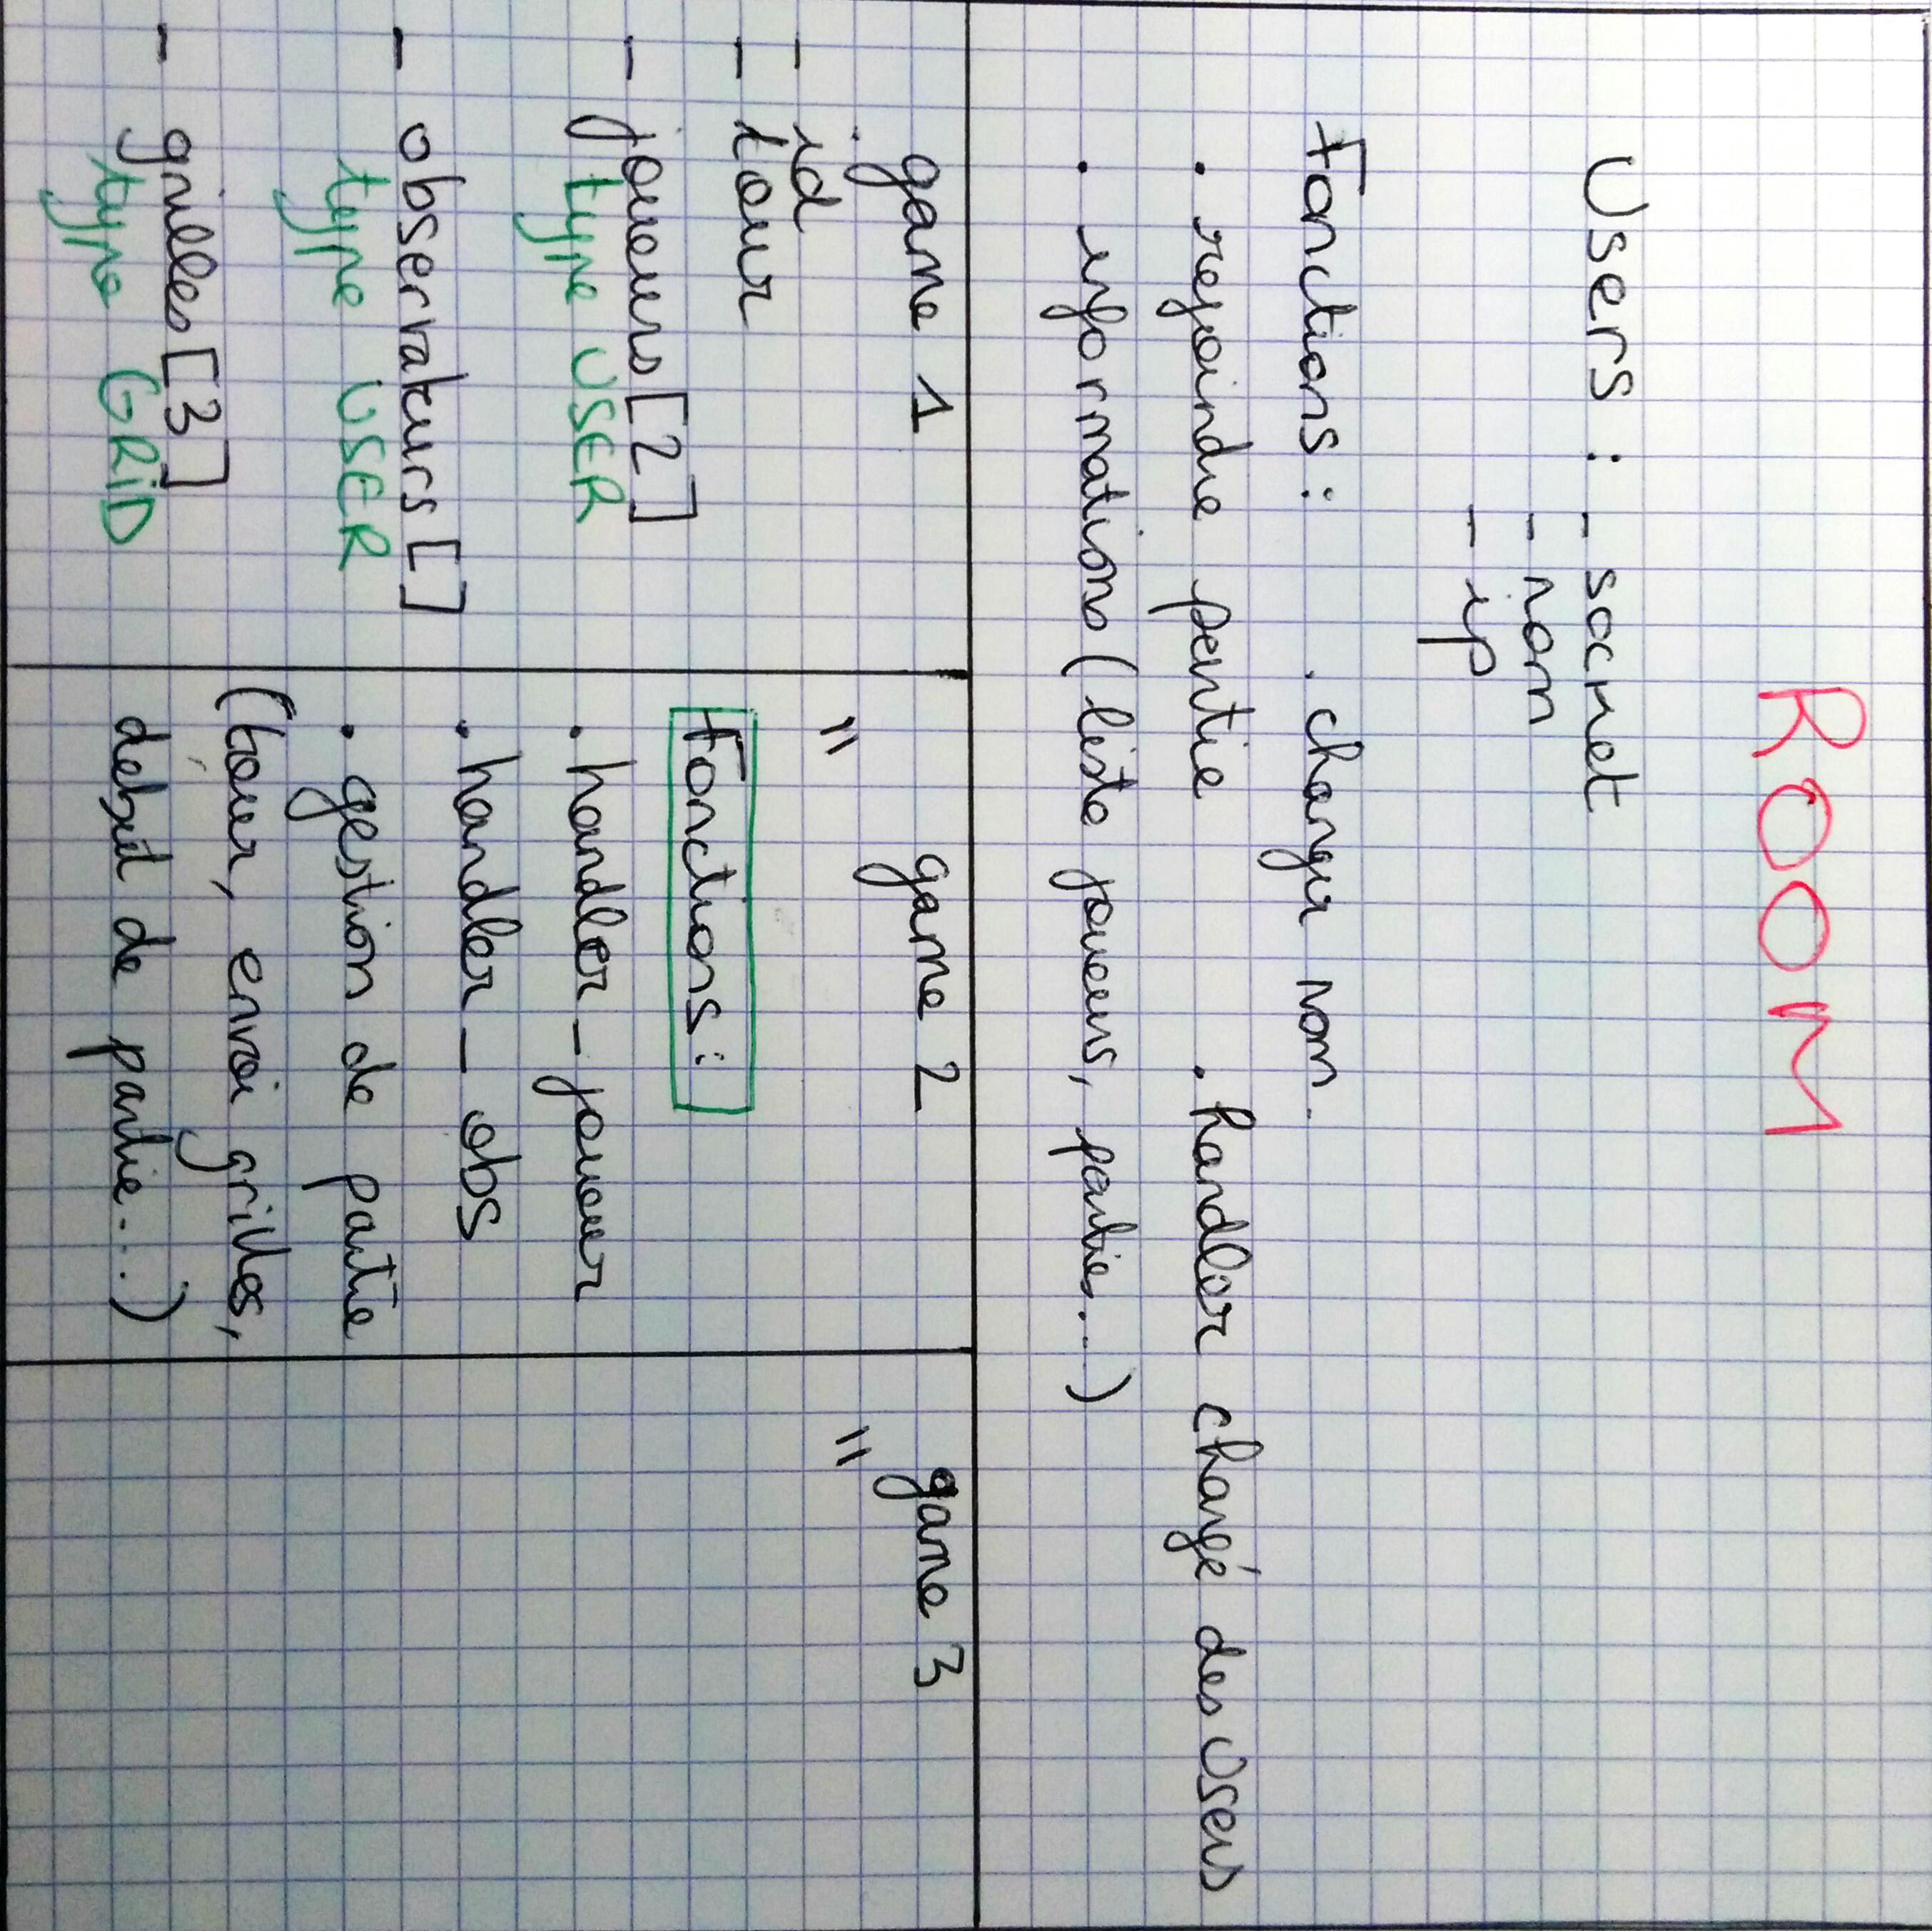 ROOM
Users : - socket
- nom
- ip
Fonctions : . changer nom.
. rejoindre partie . handler chargé des Users
. informations (liste joueurs, parties...)
game 1
- id
- tour
- joueurs [2]
type USER
- observateurs []
type USER
- grilles [3]
type GRID
game 2
"
Fonctions :
. handler_joueur
. handler_obs
. gestion de partie
(tour, envoi grilles,
debut de partie...)
game 3
"